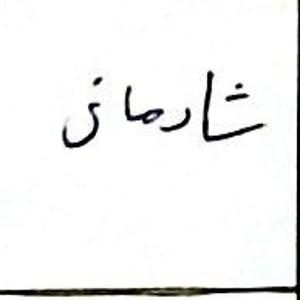 شادمانی